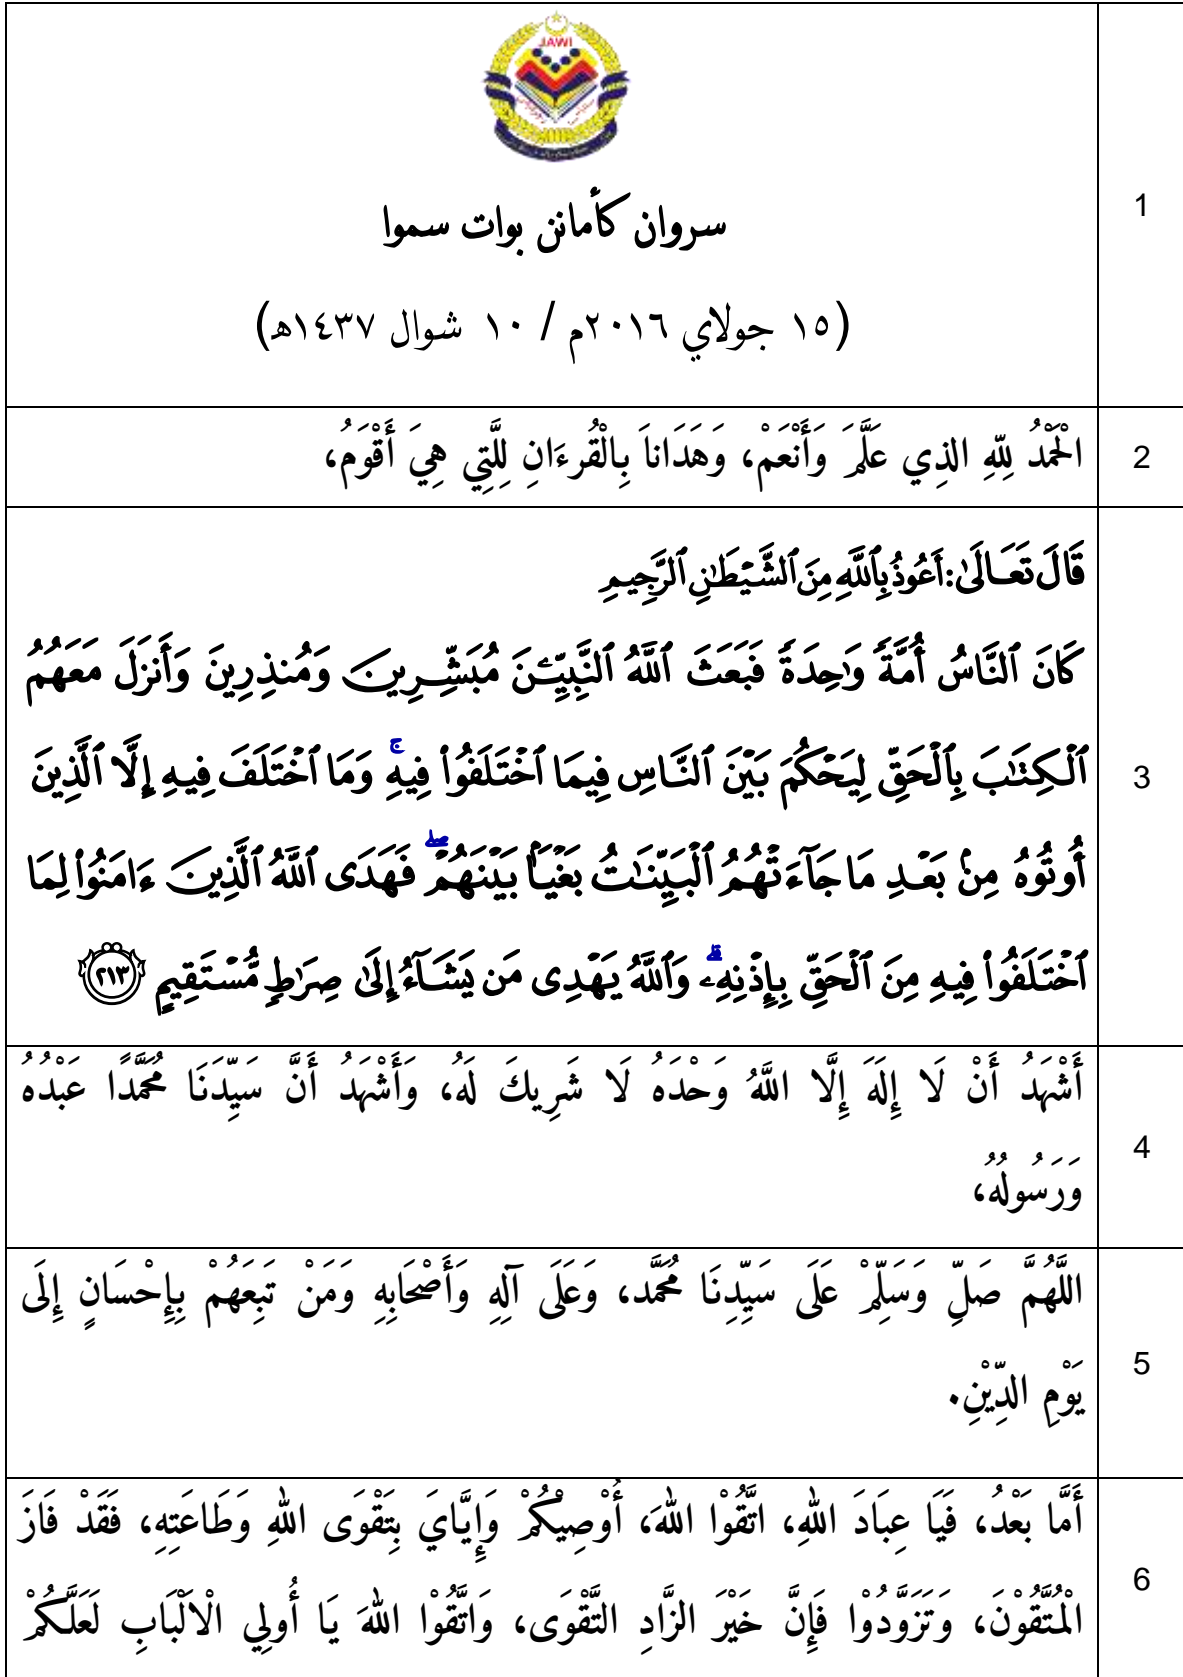 JAWI
سروان كأمانن بوات سموا
(١٥ جولاي ٢٠١٦م / ١٠ شوال ١٤٣٧ه)
1
الْحَمْدُ لِلّهِ الذِي عَلَّمَ وَأَنْعَمْ، وَهَدَاناَ بِالْقُرءَانِ لِلَّتِي هِيَ أَقْوَمُ،
2
قَالَ تَعَالَىٰ: أَعُوذُ بِٱللَّهِ مِنَ ٱلشَّيْطَٰنِ ٱلرَّجِيمِ
كَانَ ٱلنَّاسُ أُمَّةً وَٰحِدَةً فَبَعَثَ ٱللَّهُ ٱلنَّبِيِّـۧنَ مُبَشِّرِينَ وَمُنذِرِينَ وَأَنزَلَ مَعَهُمُ
ٱلْكِتَٰبَ بِٱلْحَقِّ لِيَحْكُمَ بَيْنَ ٱلنَّاسِ فِيمَا ٱخْتَلَفُوا۟ فِيهِ ۚ وَمَا ٱخْتَلَفَ فِيهِ إِلَّا ٱلَّذِينَ
أُوتُوهُ مِنۢ بَعْدِ مَا جَآءَتْهُمُ ٱلْبَيِّنَٰتُ بَغْيًۢا بَيْنَهُمْ ۖ فَهَدَى ٱللَّهُ ٱلَّذِينَ ءَامَنُوا۟ لِمَا
ٱخْتَلَفُوا۟ فِيهِ مِنَ ٱلْحَقِّ بِإِذْنِهِۦ ۗ وَٱللَّهُ يَهْدِى مَن يَشَآءُ إِلَىٰ صِرَٰطٍ مُّسْتَقِيمٍ ﴿٢١٣﴾
3
أَشْهَدُ أَنْ لَا إِلَهَ إِلَّا اللَّهُ وَحْدَهُ لَا شَرِيكَ لَهُ، وَأَشْهَدُ أَنَّ سَيِّدَنَا مُحَمَّدًا عَبْدُهُ
وَرَسُولُهُ،
4
اللَّهُمَّ صَلِّ وَسَلِّمْ عَلَى سَيِّدِنَا مُحَمَّد، وَعَلَى آلِهِ وَأَصْحَابِهِ وَمَنْ تَبِعَهُمْ بِإِحْسَانٍ إِلَى
يَوْمِ الدِّيْنِ.
5
أَمَّا بَعْدُ، فَيَا عِبَادَ اللهِ، اتَّقُوْا اللهَ، أُوْصِيْكُمْ وَإِيَّايَ بِتَقْوَى اللهِ وَطَاعَتِهِ، فَقَدْ فَازَ
الْمُتَّقُوْنَ، وَتَزَوَّدُوْا فَإِنَّ خَيْرَ الزَّادِ التَّقْوَى، وَاتَّقُوْا اللهَ يَا أُولِي الْاَلْبَابِ لَعَلَّكُمْ
6